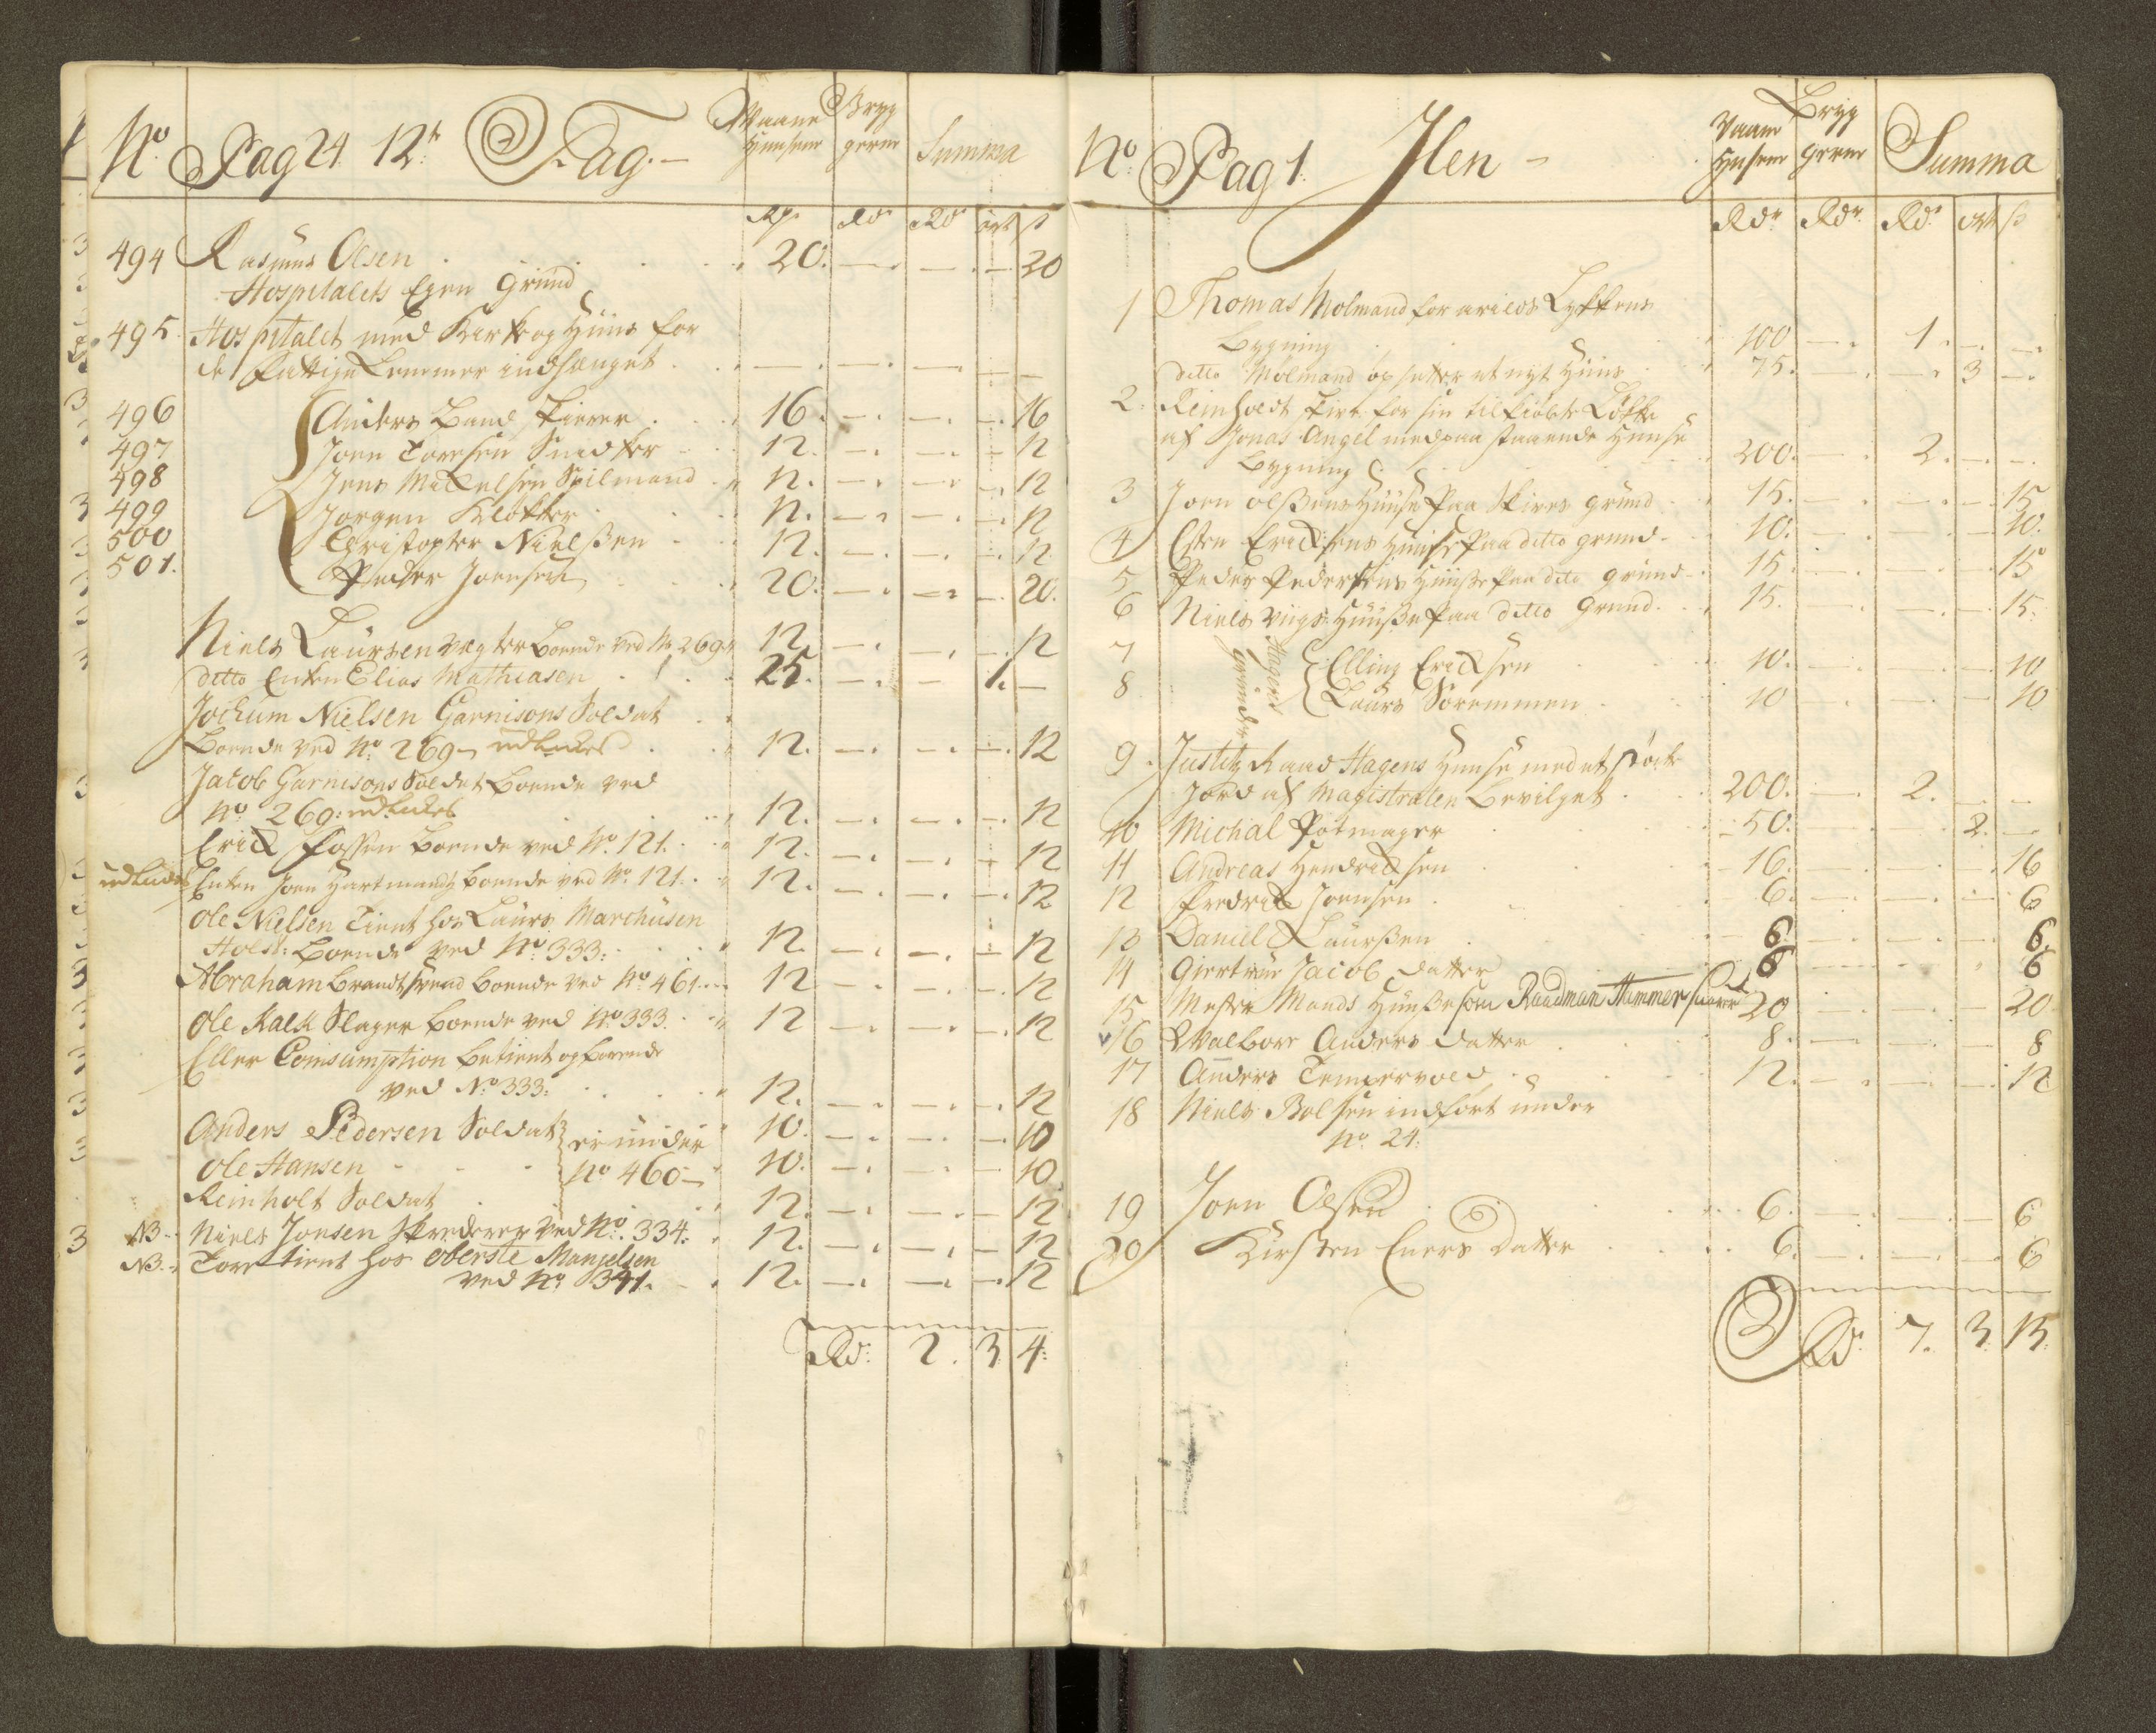 No. Pag 24 12te Rag. Vaane Huusene Bryg gerne Summa
Rdr Rdr Rdr ort s
494 Rasmus Olsen 20. — — — 20
Hospitalets Egen Grund
495. Hospitalet med Kirke og Huus for
de Fattige Lemmer indhænget — — — — —
496 Anders Band Skierer 16. — — — 16
497 Joen Toresen Snidker 12. — — — 12
498 Jens Mickelsen Spilmand 12. — — — 12
499 Jorgen Klokker 12. — — — 12
500 Christopher Nielssen 12. — — — 12
501. Peder Joensen 20. — — — 20.
Niels Laursen vægter boende ved No 269 12. — — — 12
ditto Enken Elias Mathiasen 25. — — 1. —
Jochum Nielsen Garnisons Soldat
Boende ved No. 269 — udlukes 12. — — — 12
Jacob Garnisons Soldat boende ved
No 269: udlukes 12. — — — 12
Erick Fossen boende ved No. 121. 12. — — — 12
udlukes Enken Joen Hartmands boende ved No. 121. 12. — — — 12
Ole Nielsen Tient hos Laurs Marchusen
Holst: boende ved No. 333: 12. — — — 12
Abraham Brandtsvend boende ved No. 461 12 — — — 12
Ole Kalk Slager boende ved No. 333. 12 — — — 12
Eller Comsumption betient og boende
ved No. 333: 12. — — — 12
Anders Pedersen Soldat er under 10. — — — 10
Ole Hansen No 460 — 10. — — — 10
Reinholt Soldat 12. — — — 12
NB. Niels Jonsen Skreder ved No. 334. 12. — — — 12
NB. Tore tient hos Oberste Manjelsen
ved No 341. 12. — — — 12
Rdr. 2. 3. 4.
No. Pag 1. Jlen — Vaane Husene Bryg gerne Summa
Rdr. Rdr. Rdr. ort s
1 Thomas Molmand for Lykkens
Bygning 100 — 1. — —
ditto Molmand opsetter et nyt Huus 75. — — 3 —
2. Reinholdt for sin tilkiøbte Løkke
af Jonas Angel med paa staaende Huuse
Bygning 200. — 2. — —
3 Joen Olssens Huuse Paa Skires grund 15. — — — 15
4 Esten Ericksens Huuse Paa ditto grund 10. — — — 10.
5 Peder Pedersens Huusse Paa dito grund 15. — — — 15
6 Niels Viigs Huusse Paa ditto Grund. 15. — — — 15.
Hagens grund
7 Elling Ericksen 10. — — — 10
8 Laurs Soremmen 10 — — — 10
9. Justitz Raad Hagens Huuse med et støcke
Jord af Magistraten Bevilget 200. — 2. — —
10 Michal Potmager 50. — — 2. —
11 Andreas Hendricksen 16. — — — 16
12 Fredrick Joensen 6. — — — 6
13 Daniel Laurssen 6. — — — 6.
14 Giertrue Jacob datter 6 — — — 6
15 Mester Mands Huusse som Raadman Hammer 20 — — — 20
16 Walbore Anders datter 8. — — — 8
17 Anders Tempervold 12. — — — 12
18 Niels Bolsen indført under
No. 24.
19 Joen Olsen 6. — — — 6
20 Kirsten Eners datter 6. — — — 6
Rdr. 7. 3. 13.